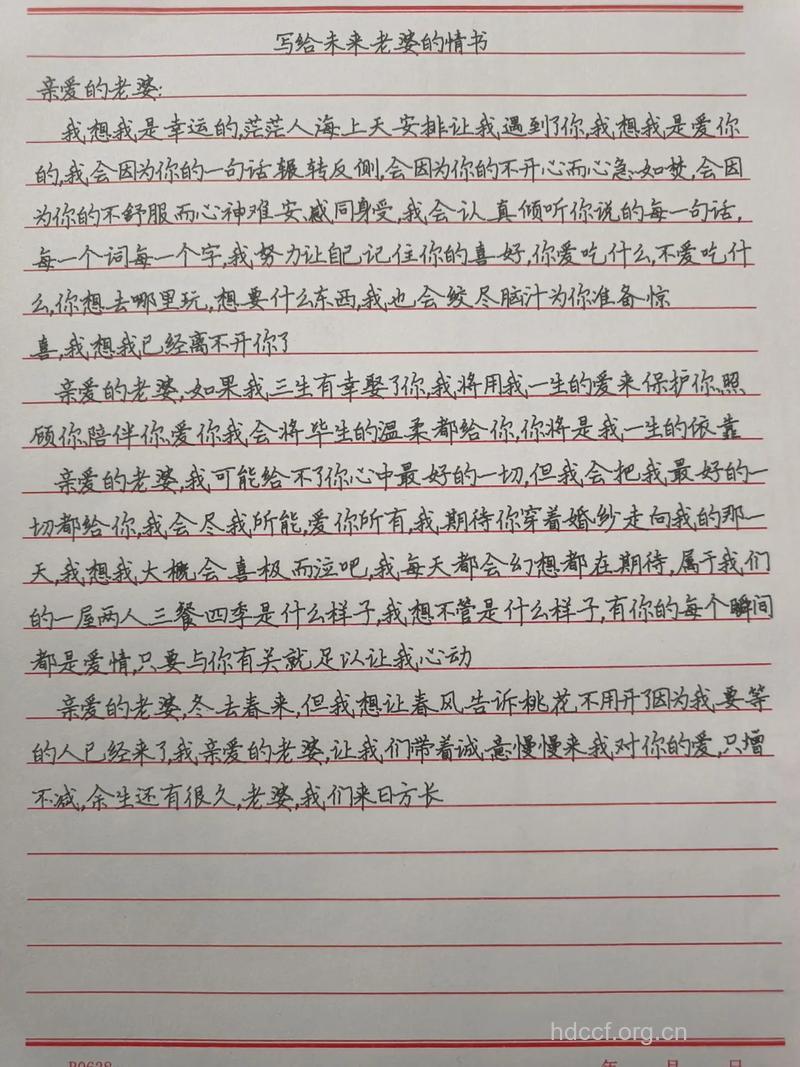 写给未来老婆的情书
亲爱的老婆:
我想我是幸运的,茫茫人海上天安排让我遇到了你,我想我是爱你
的,我会因为你的一句话辗转反侧,会因为你的不开心而心急如焚,会因
为你的不舒服而心神难安、感同身受,我会认真倾听你说的每一句话,
每一个词每一个字,我努力让自己记住你的喜好,你爱吃什么,不爱吃什
么,你想去哪里玩,想要什么东西,我也会绞尽脑汁为你准备惊
喜,我想我已经离不开你了
亲爱的老婆,如果我三生有幸娶了你,我将用我一生的爱来保护你、照
顾你、陪伴你、爱你我会将毕生的温柔都给你,你将是我一生的依靠
亲爱的老婆,我可能给不了你心中最好的一切,但我会把我最好的一
切都给你,我会尽我所能,爱你所有,我期待你穿着婚纱走向我的那一
天,我想我大概会喜极而泣吧,我每天都会幻想都在期待,属于我们
的一屋两人三餐四季是什么样子,我想不管是什么样子,有你的每个瞬间
都是爱情,只要与你有关就足以让我心动
亲爱的老婆,冬去春来,但我想让春风告诉桃花不用开了因为我要等
的人已经来了,我亲爱的老婆,让我们带着诚意慢慢来我对你的爱,只增
不减,余生还有很久,老婆,我们来日方长
hdccf.org.cn
年 月 日